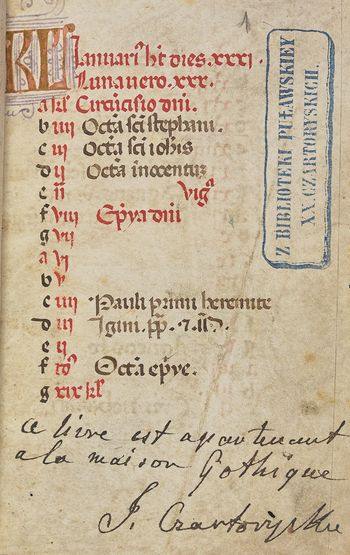 1
KL Januari9 ht dies. xxxi.
Luna uero. xxx.
a kł Circūcisio dn̄i.
b iiii Octa sc̄i stephani.
c iii Octa sc̄i iohis
d ii Octa īnocentuz
e ii Vigᵃ
f viii Epyā dn̄i
g vii
a vi
b v
c iiii Pauli primi heremite
d iii Igini. pp. ⁊
e ii
f Octa epye.
g xix kł
Z BIBLIOTEKI PUŁAWSKIEY
XX. CZARTORYSKICH.
Ce livre est apartenant
a la maison Gothique
I. Czartoryska